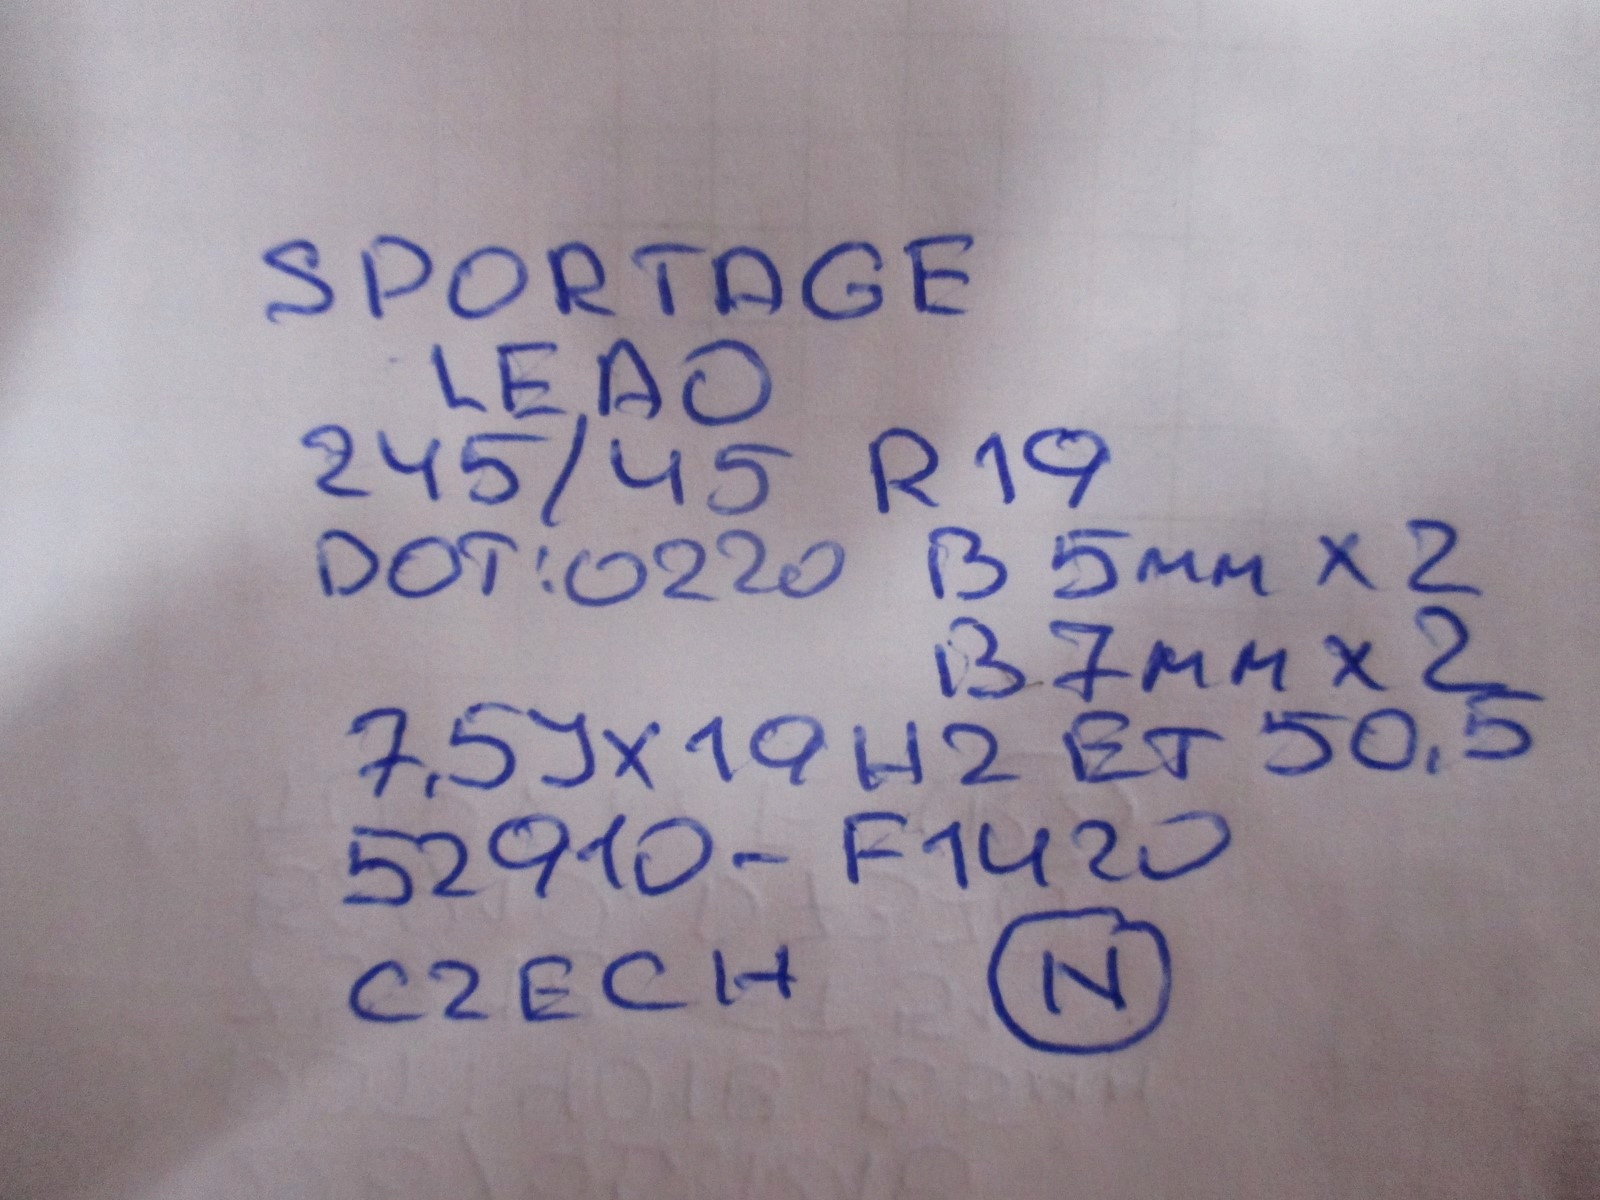 SPORTAGE
LEAO
245/45 R19
DOT:0220 B 5мм x 2
B 7мм x 2
7,5Jx19 H2 ET 50,5
52910- F1420
CZECH N